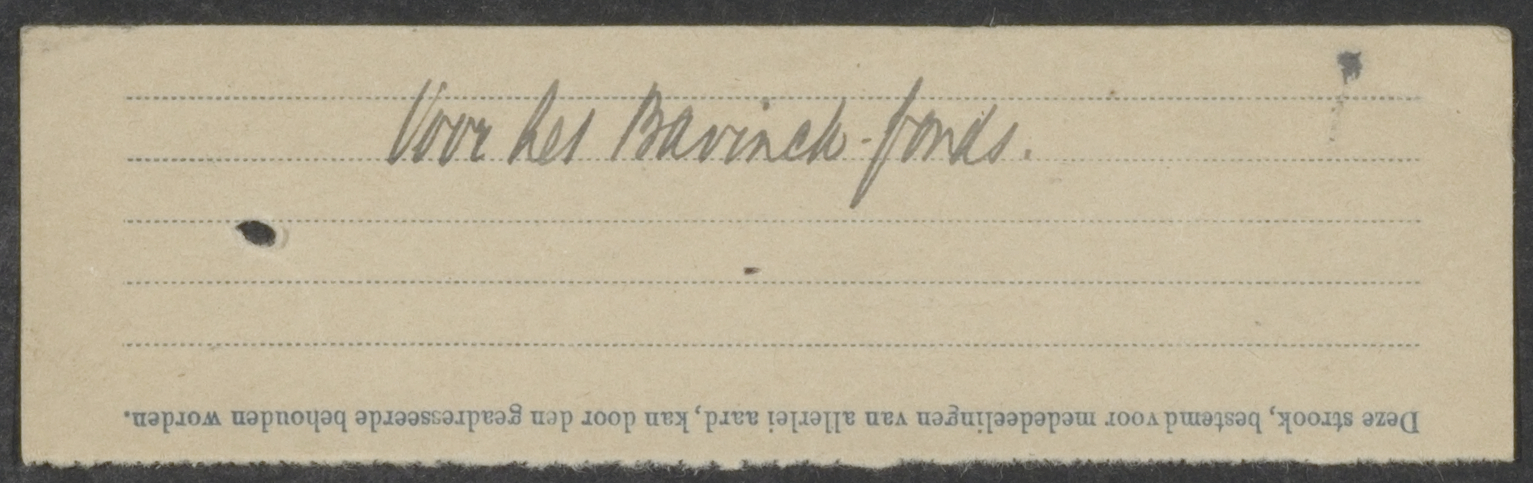 Voor het Bavinck-fonds.
Deze strook, bestemd voor mededeelingen van allerlei aard, kan door den geadresseerde behouden worden.